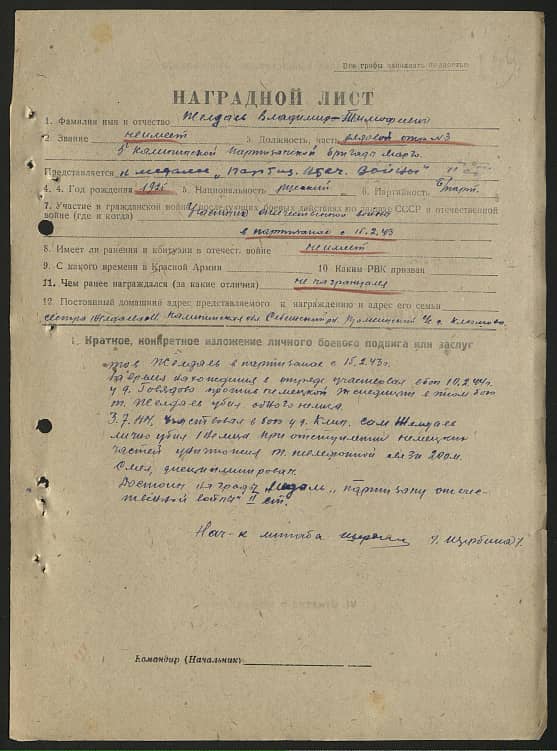 Все графы заполнять полностью
НАГРАДНОЙ ЛИСТ
1. Фамилия имя и отчество Желдаев Владимир Тимофеевич
2. Звание неимеет 3. Должность, часть рядовой отр. №3
5 Калининской партизанской бригады
Представляется к медаль „Партиз. Отеч. Войны" II ст.
4. 4. Год рождения 1926 5. Национальность русский 6. Партийность б/парт.
7. Участие в гражданской войне, последующих боевых действиях по защите СССР и отечественной
войне (где и когда) Участник отечественной войны
в партизанах с 15.2.43
8. Имеет ли ранения и контузии в отечест. войне неимеет
9. С какого времени в Красной Армии 10 Каким РВК призван
11. Чем ранее награждался (за какие отличия) не награждался
12. Постоянный домашний адрес представляемого к награждению и адрес его семьи
сестра Калининская обл. Себежский р-н
1. Краткое, конкретное изложение личного боевого подвига или заслуг
тов Желдаев в партизанах с 15.2.43 г.
За время нахождения в отряде участвовал в бою 10.2.44 г.
у д. против немецкой экспедиции в этом бою
т. Желдаев убил одного немца.
3.7. участвовал в бою у д. сам Желдаев
лично убил 1 немца при отступлении немецких
частей уничтожил т. телефонной связи 200 м.
Смел, дисциплинирован.
Достоин награды медаль „партизану отече-
ственной войны" II ст.
Нач-к штаба /Щербина/.
Командир (Начальник)